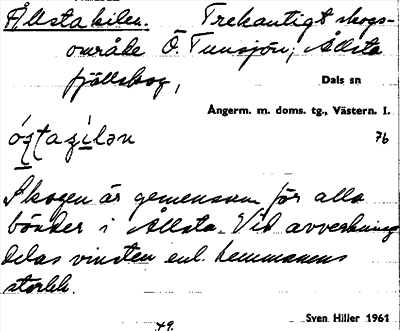 Ållstakilen. Trekantigt skogs-
område Ö. Tunsjön, Ållsta
fjällskog,
Dals sn
Ångerm. m. doms. tg., Västern. l.
76
Skogen är gemensam för alla
bönder i Ållsta. Vid avverkning
delas vinsten enl. hemmanens
storlek.
Sven Hiller 1961
49.